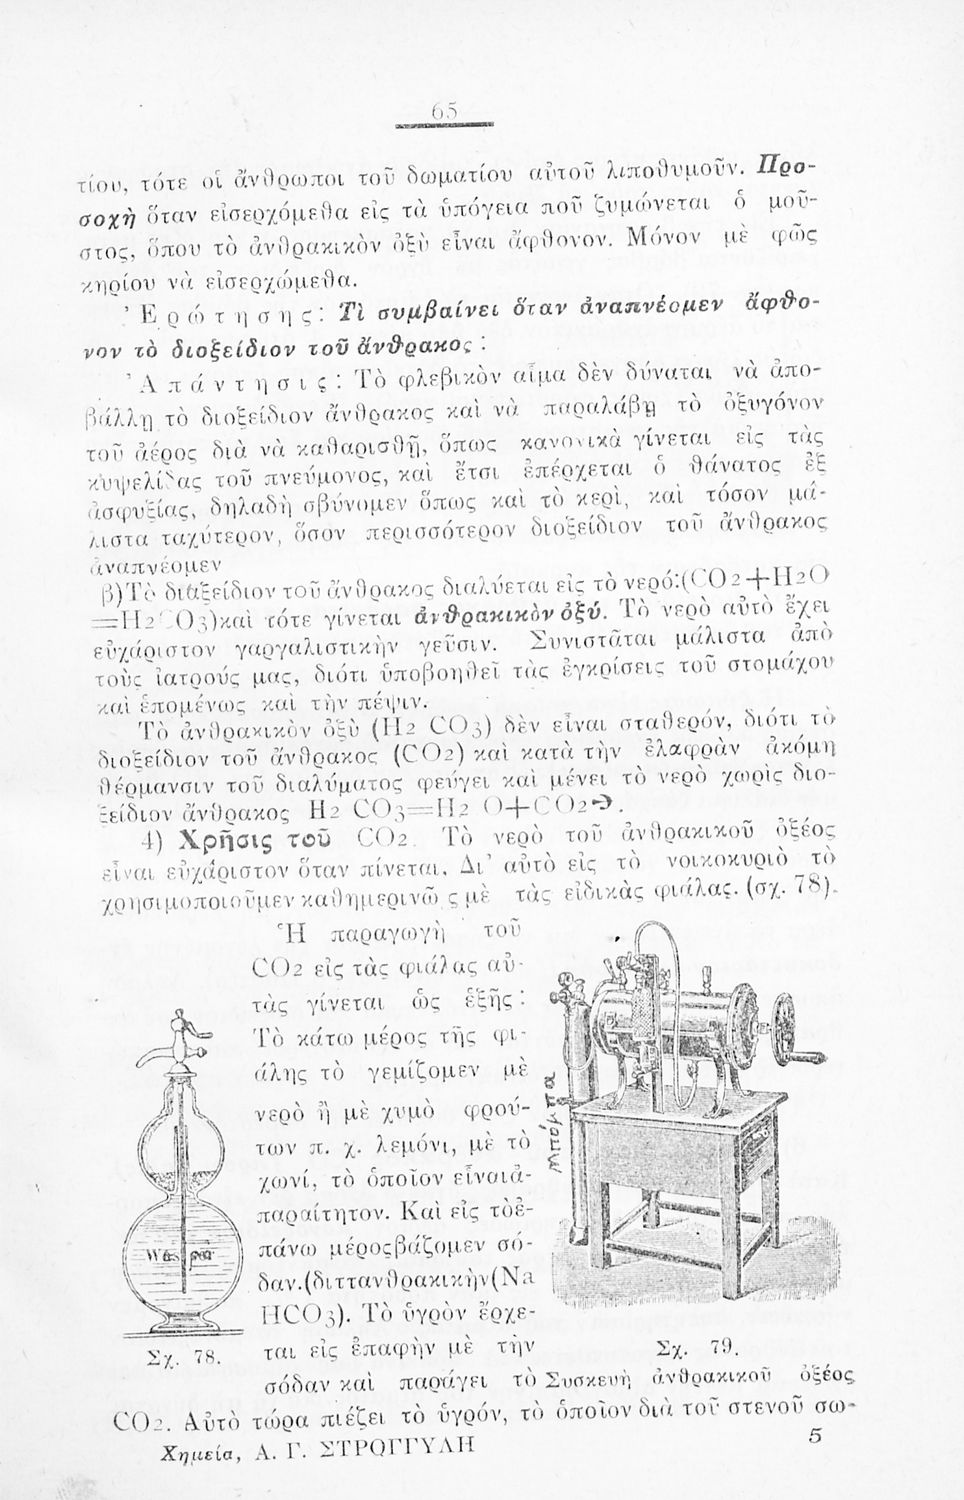 65
τίου, τότε οἱ ἄνθρωποι τοῦ δωματίου αὐτοῦ λιποθυμοῦν. Προ-
σοχὴ ὅταν εἰσερχόμεθα εἰς τὰ ὑπόγεια ποῦ ζυμώνεται ὁ μοῦ-
στος, ὅπου τὸ ἀνθρακικὸν ὀξὺ εἶναι ἄφθονον. Μόνον μὲ φῶς
κηρίου νὰ εἰσερχώμεθα.
Ἐρώτησης: Τὶ συμβαίνει ὅταν ἀναπνέομεν ἄφθο-
νον τὸ διοξείδιον τοῦ ἄνθρακος :
Ἀπάντησις: Τὸ φλεβικὸν αἷμα δὲν δύναται νὰ ἀπο-
βάλλῃ τὸ διοξείδιον ἄνθρακος καὶ νὰ παραλάβῃ τὸ ὀξυγόνον
τοῦ ἀέρος διὰ νὰ καθαρισθῇ, ὅπως κανονικὰ γίνεται εἰς τὰς
κυψελίδας τοῦ πνεύμονος, καὶ ἔτσι ἐπέρχεται ὁ θάνατος ἐξ
ἀσφυξίας, δηλαδὴ σβύνομεν ὅπως καὶ τὸ κερὶ, καὶ τόσον μά-
λιστα ταχύτερον, ὅσον περισσότερον διοξείδιον τοῦ ἄνθρακος
ἀναπνέομεν
β) Τὸ διαξείδιον τοῦ ἄνθρακος διαλύεται εἰς τὸ νερό:(CO2+H2O
=H2CO3) καὶ τότε γίνεται ἀνθρακικὸν ὀξύ. Τὸ νερὸ αὐτὸ ἔχει
εὐχάριστον γαργαλιστικὴν γεῦσιν. Συνιστᾶται μάλιστα ἀπὸ
τοὺς ἰατρούς μας, διότι ὑποβοηθεῖ τὰς ἐγκρίσεις τοῦ στομάχου
καὶ ἑπομένως καὶ τὴν πέψιν.
Τὸ ἀνθρακικὸν ὀξὺ (H2 CO3) δὲν εἶναι σταθερόν, διότι τὸ
διοξείδιον τοῦ ἄνθρακος (CO2) καὶ κατὰ τὴν ἐλαφρὰν ἀκόμη
θέρμανσιν τοῦ διαλύματος φεύγει καὶ μένει τὸ νερὸ χωρὶς διο-
ξείδιον ἄνθρακος H2 CO3=H2 O+CO2➔.
4) Χρῆσις τοῦ CO2. Τὸ νερὸ τοῦ ἀνθρακικοῦ ὀξέος
εἶναι εὐχάριστον ὅταν πίνεται. Δι' αὐτὸ εἰς τὸ νοικοκυριὸ τὸ
χρησιμοποιοῦμεν καθημερινῶς μὲ τὰς εἰδικὰς φιάλας. (σχ. 78).
Ἡ παραγωγὴ τοῦ
CO2 εἰς τὰς φιάλας αὐ-
τὰς γίνεται ὡς ἑξῆς :
Τὸ κάτω μέρος τῆς φι-
άλης τὸ γεμίζομεν μὲ
νερὸ ἢ μὲ χυμὸ φρού-
των π. χ. λεμόνι, μὲ τὸ
χωνί, τὸ ὁποῖον εἶναι ἀ-
παραίτητον. Καὶ εἰς τὸ ἐ-
πάνω μέρος βάζομεν σό-
δαν.(διττανθρακικὴν(Na
HCO3). Τὸ ὑγρὸν ἔρχε-
ται εἰς ἐπαφὴν μὲ τὴν
σόδαν καὶ παράγει τὸ
Wasser
Σχ. 78.
Μπόμπα
Σχ. 79.
Συσκευὴ ἀνθρακικοῦ ὀξέος
CO2. Αὐτὸ τώρα πιέζει τὸ ὑγρόν, τὸ ὁποῖον διὰ τοῦ στενοῦ σω-
Χημεία, Α. Γ. ΣΤΡΟΓΓΥΛΗ
5